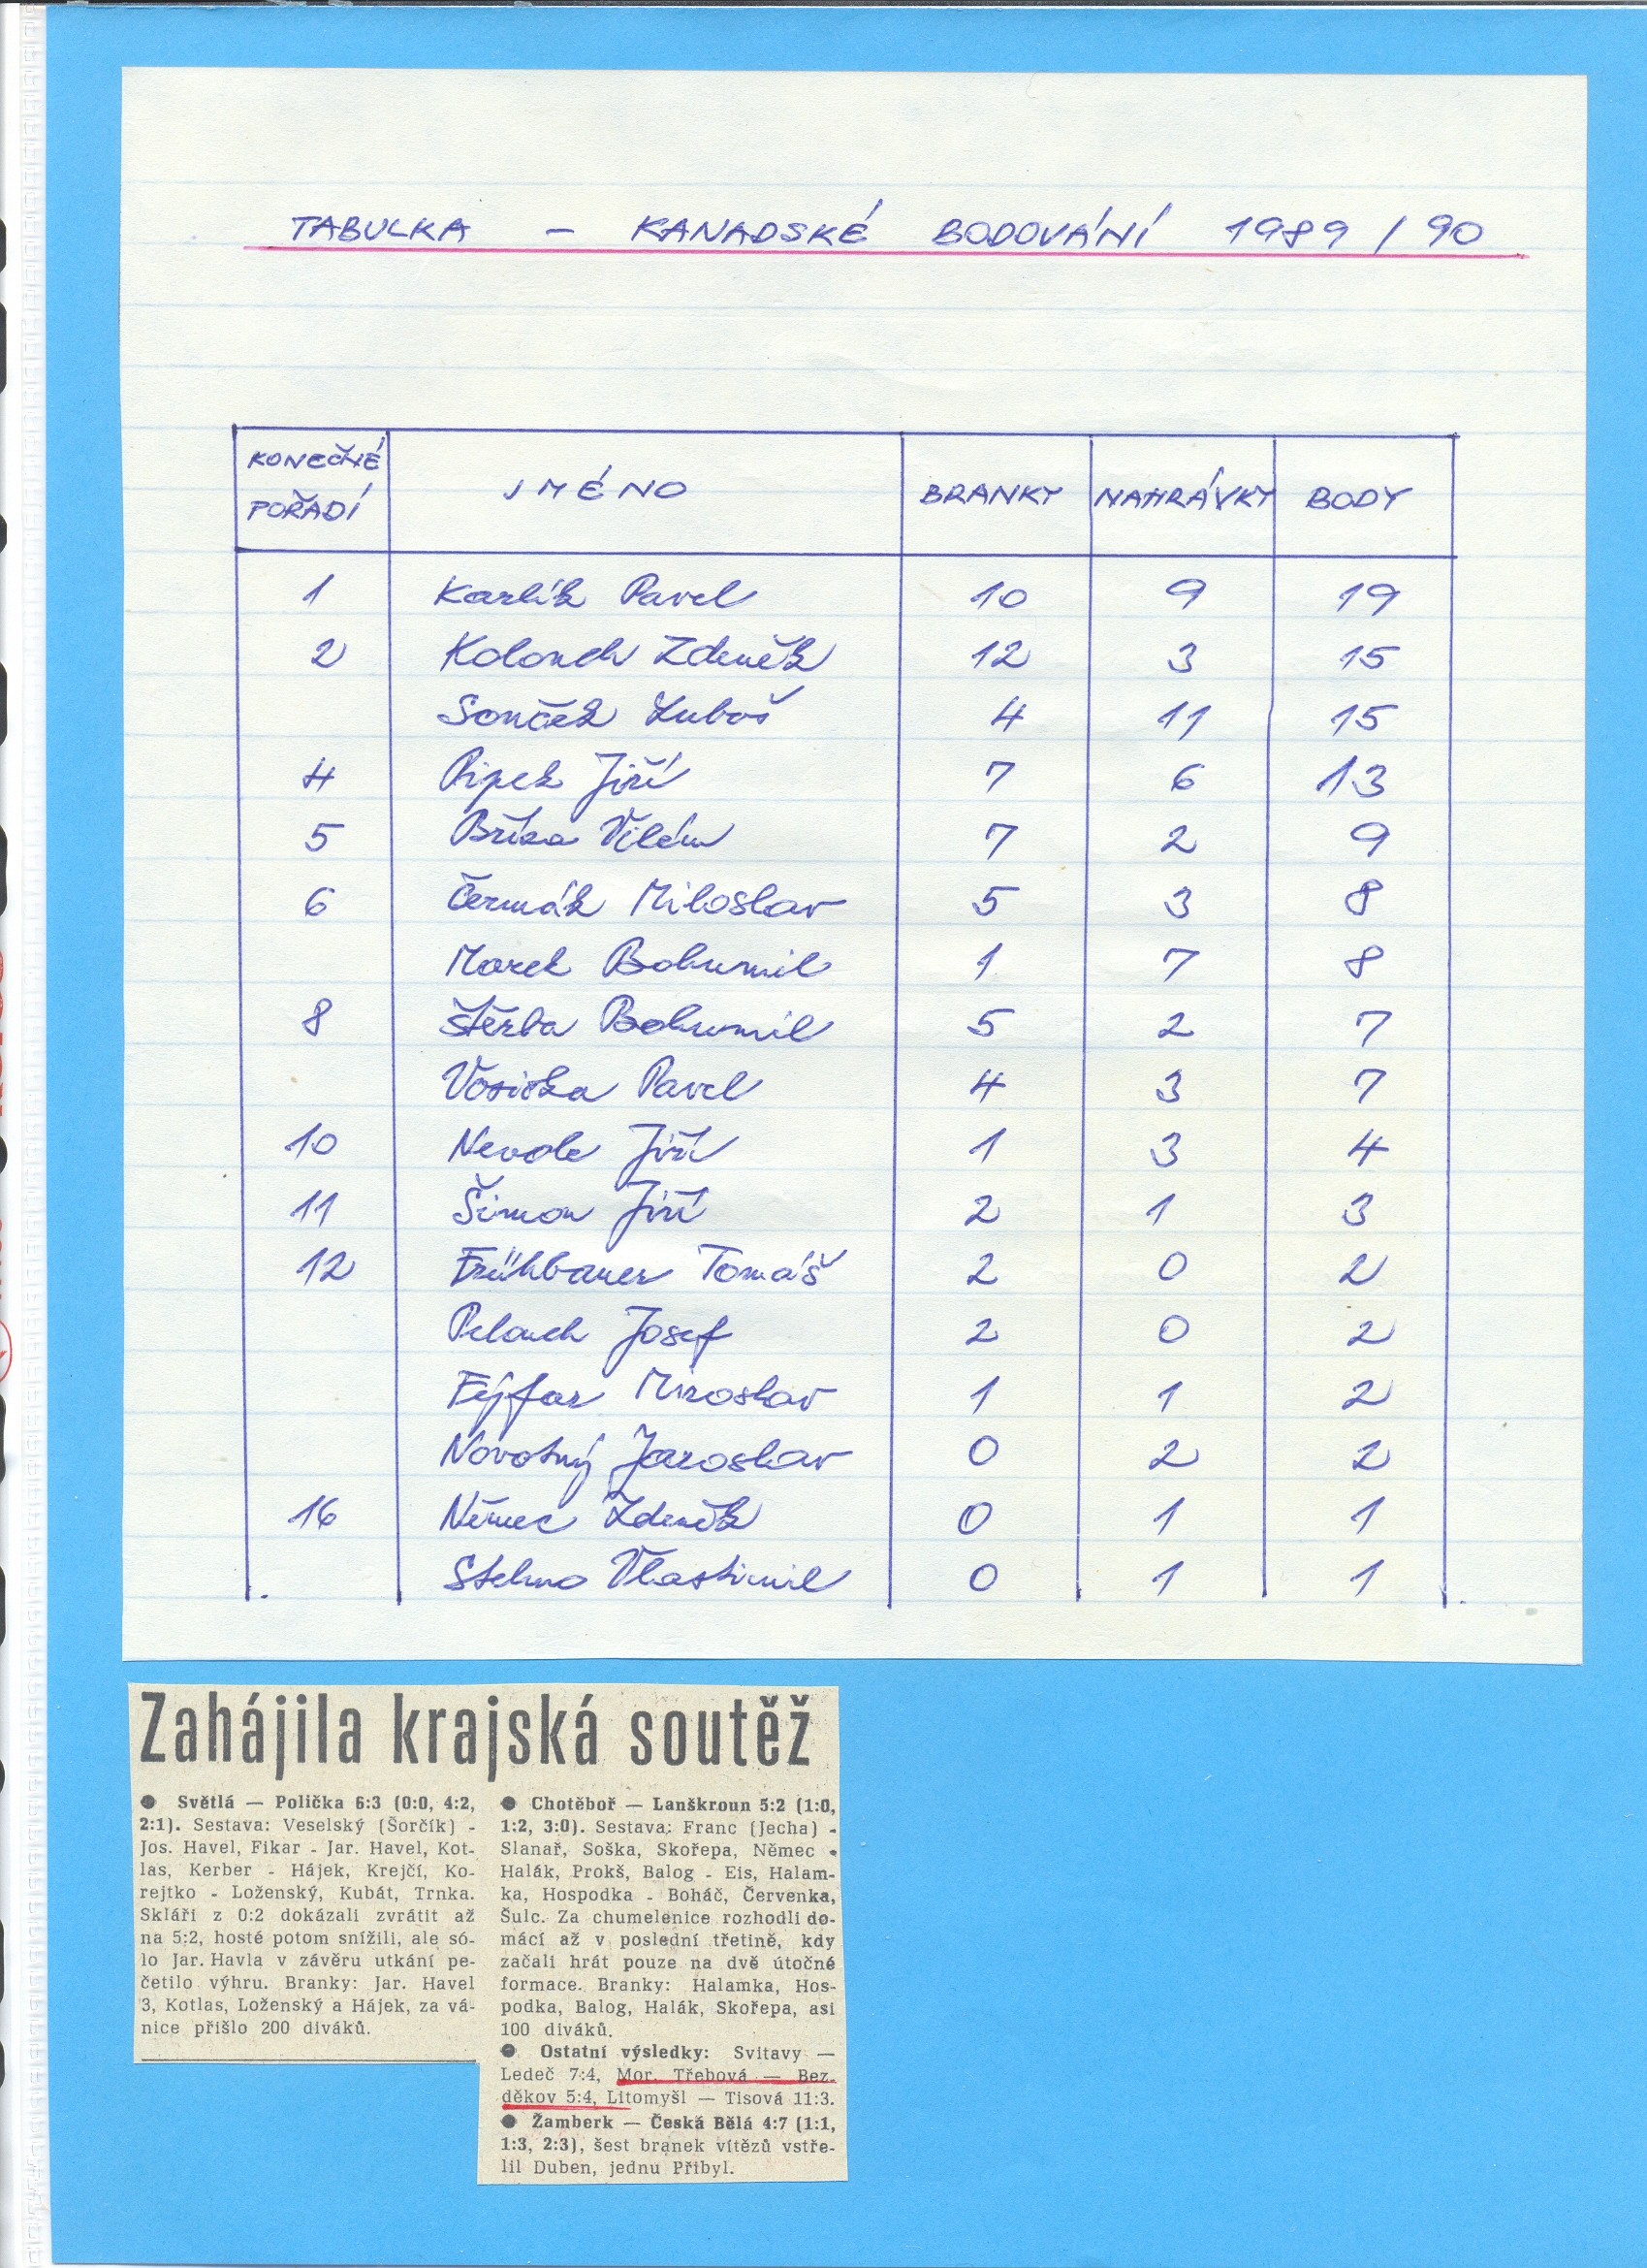 TABULKA - KANADSKÉ BODOVÁNÍ 1989/90
KONEČNÉ POŘADÍ JMÉNO BRANKY NAHRÁVKY BODY
1 Karlík Pavel 10 9 19
2 Kolouch Zdeněk 12 3 15
Souček Luboš 4 11 15
4 Pipek Jiří 7 6 13
5 Bříza Vilém 7 2 9
6 Čermák Miloslav 5 3 8
Marek Bohumil 1 7 8
8 Štěrba Bohumil 5 2 7
Vosička Pavel 4 3 7
10 Nevole Jiří 1 3 4
11 Šimon Jiří 2 1 3
12 Frühbauer Tomáš 2 0 2
Pelouch Josef 2 0 2
Fýfar Miroslav 1 1 2
Novotný Jaroslav 0 2 2
16 Němec Zdeněk 0 1 1
Stehno Vlastimil 0 1 1
Zahájila krajská soutěž
● Světlá — Polička 6:3 (0:0, 4:2,
2:1). Sestava: Veselský (Šorčík) -
Jos. Havel, Fikar - Jar. Havel, Kot-
las, Kerber - Hájek, Krejčí, Ko-
rejtko - Loženský, Kubát, Trnka.
Skláři z 0:2 dokázali zvrátit až
na 5:2, hosté potom snížili, ale só-
lo Jar. Havla v závěru utkání pe-
četilo výhru. Branky: Jar. Havel
3, Kotlas, Loženský a Hájek, za vá-
nice přišlo 200 diváků.
● Chotěboř — Lanškroun 5:2 (1:0,
1:2, 3:0). Sestava: Franc (Jecha) -
Slanař, Soška, Skořepa, Němec -
Halák, Prokš, Balog - Eis, Halam-
ka, Hospodka - Boháč, Červenka,
Šulc. Za chumelenice rozhodli do-
mácí až v poslední třetině, kdy
začali hrát pouze na dvě útočné
formace. Branky: Halamka, Hos-
podka, Balog, Halák, Skořepa, asi
100 diváků.
● Ostatní výsledky: Svitavy —
Ledeč 7:4, Mor. Třebová — Bez-
děkov 5:4, Litomyšl — Tisová 11:3.
● Žamberk — Česká Bělá 4:7 (1:1,
1:3, 2:3), šest branek vítězů vstře-
lil Duben, jednu Přibyl.